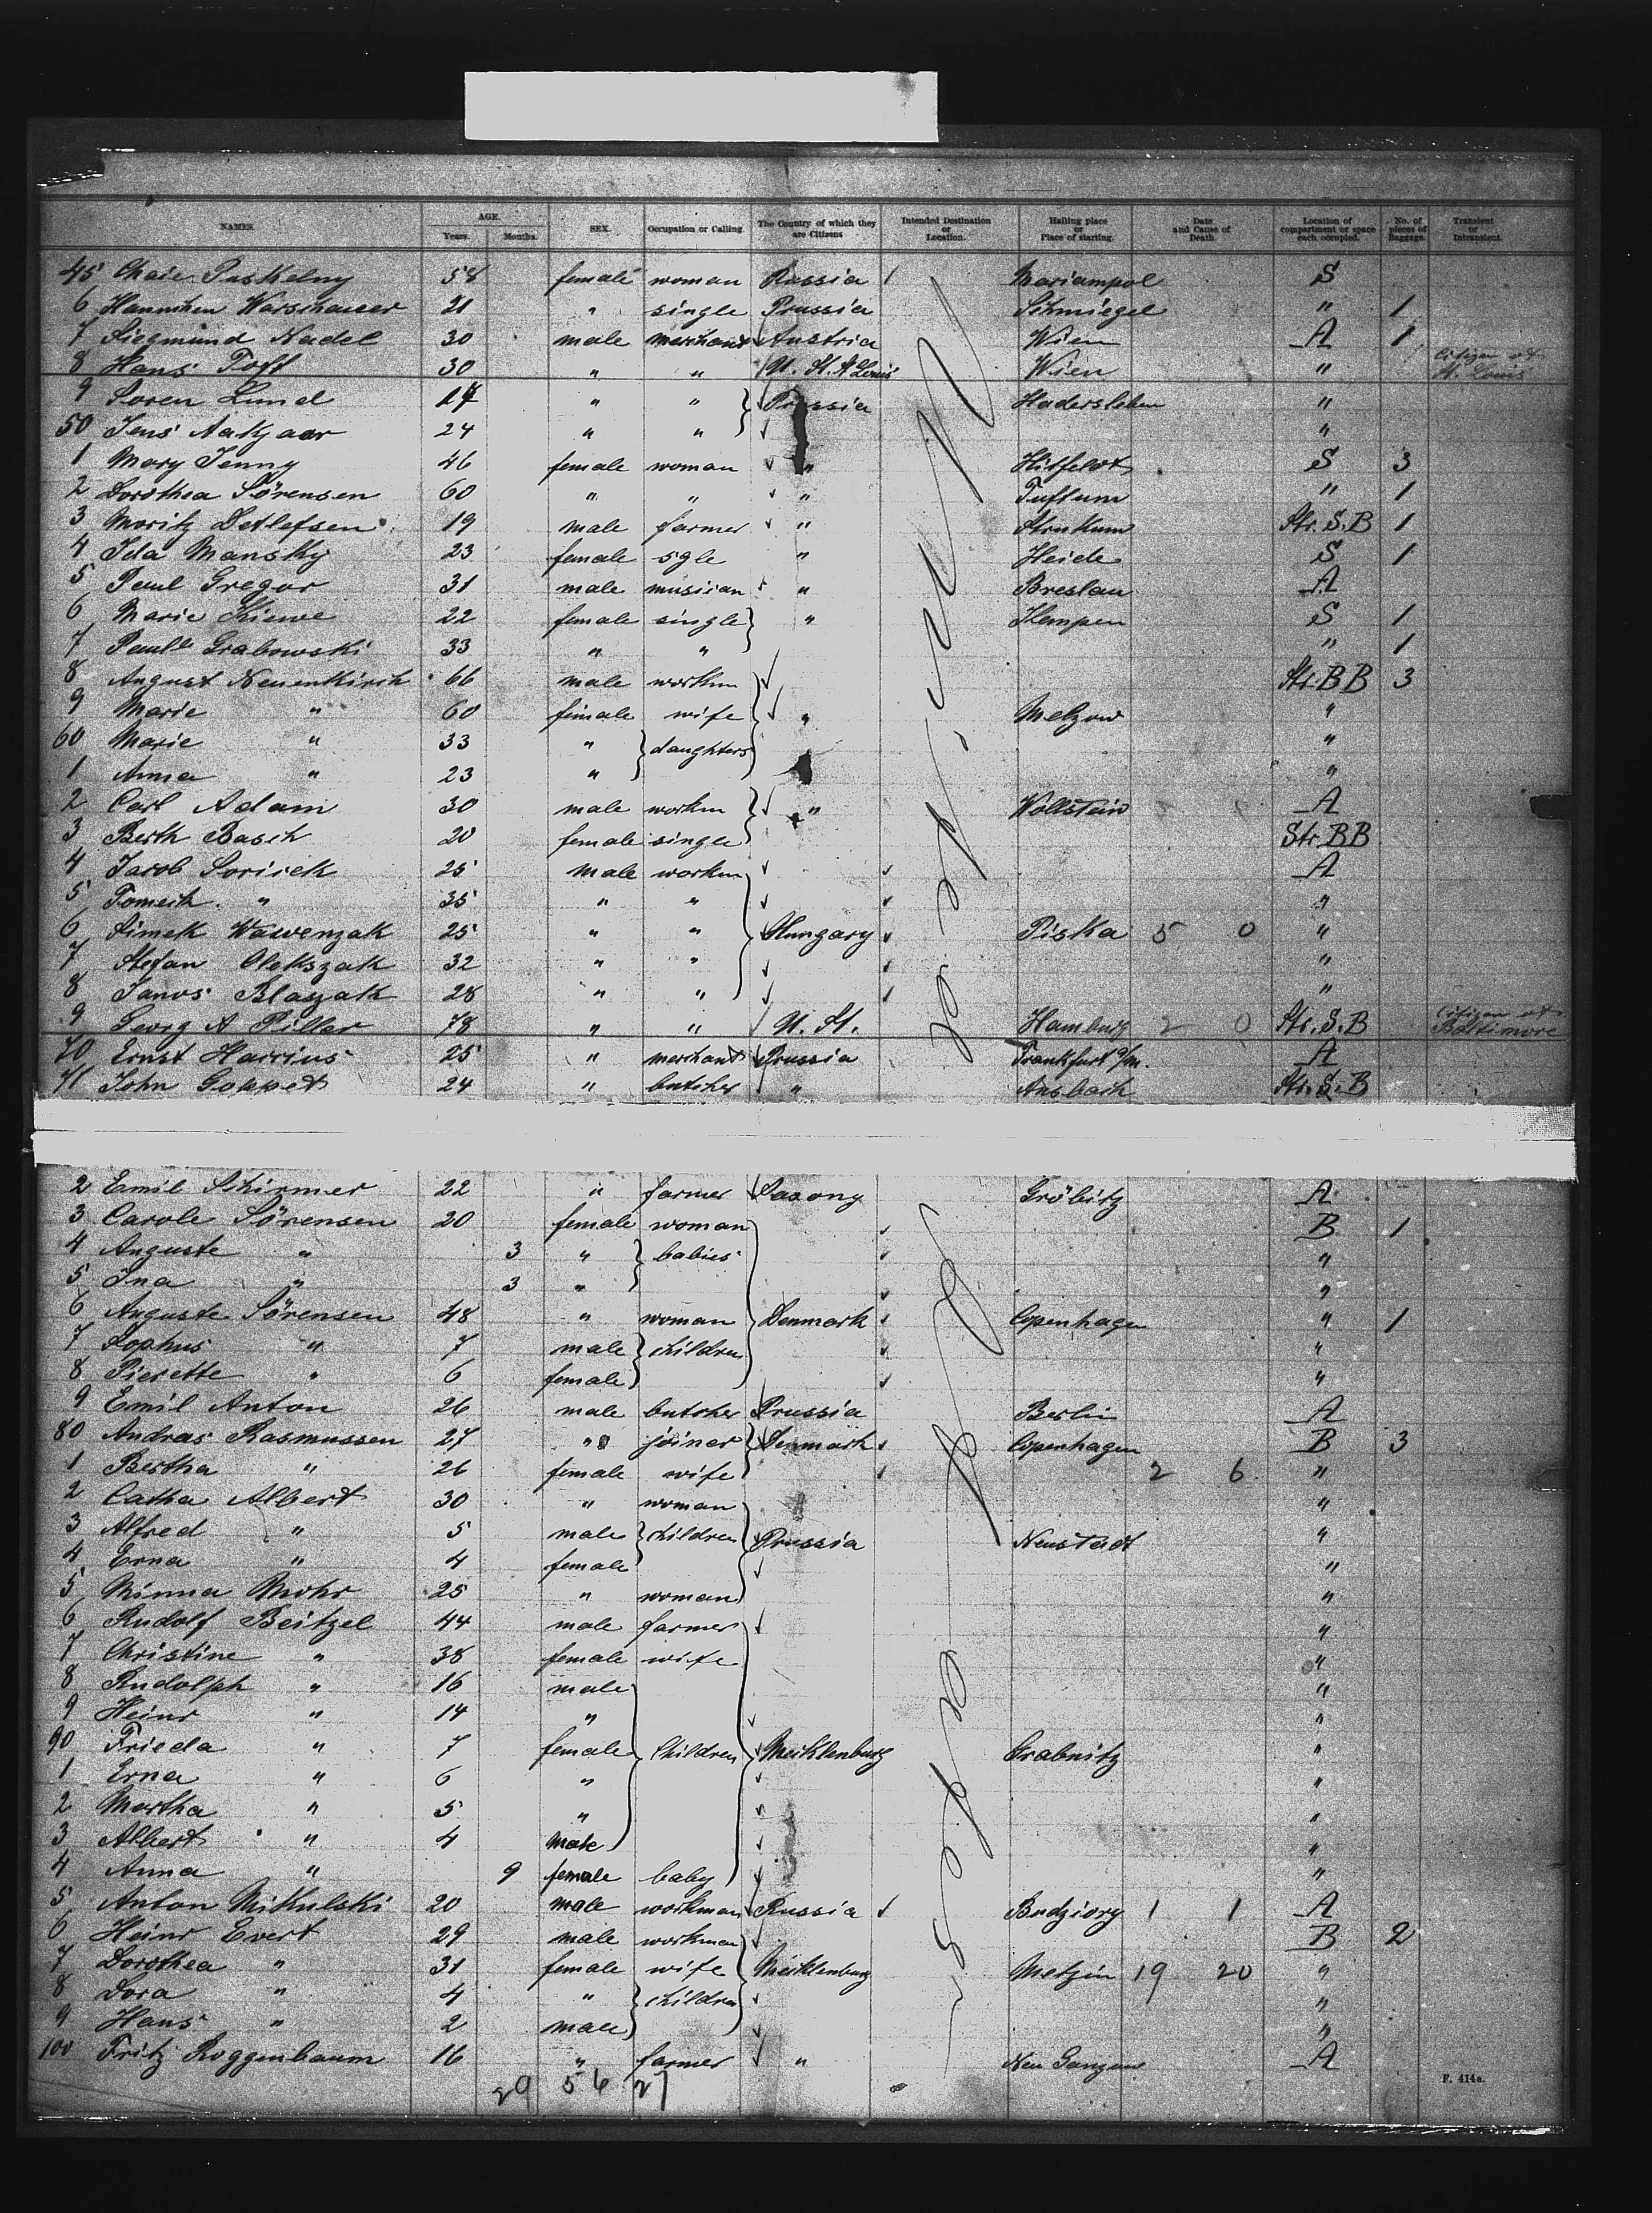 NAMES. AGE. Years. Months. SEX. Occupation or Calling. The Country of which they are Citizens Intended Destination or Location. Hailing place or Place of starting. Date and Cause of Death. Location of compartment or space each occupied. No. of pieces of Baggage. Transient or Intransient.
45 Chaie Puskelny 58 female woman Russia Mariampol S
6 Hannchen Warschauer 21 " single Prussia Schmiegel " 1
7 Siegmund Nadel 30 male merchant Austria Wien A 1
8 Hans Toft 30 " " U. St. St Louis Wien " Citizen of St. Louis
9 Soren Lund 17 " " Prussia Hadersleben "
50 Jens Aakjaer 24 " " "
1 Mary Jenny 46 female woman " S 3
2 Dorothea Sörensen 60 " " " Tuftum " 1
3 Moritz Detlefsen 19 male farmer " Str. S. B 1
4 Ida Mansky 23 female sgle " Heide S 1
5 Paul Gregor 31 male musician " Breslau A
6 Marie Kiewe 22 female single " Kempen S 1
7 Paule Grabowski 33 " " " 1
8 August Neuenkirch 66 male workm Str. BB 3
9 Marie " 60 female wife " Melzow "
60 Marie " 33 " daughters "
1 Anna " 23 " "
2 Carl Adam 30 male workm " Wollstein A
3 Berth Basch 20 female single Str. BB
4 Jacob Soricek 25 male workm A
5 Tomech " 35 " " "
6 Simek Wawenzak 25 " " Hungary Piska 5 0 "
7 Stefan Olekszak 32 " " "
8 Janos Blaszak 28 " " "
9 Georg A Piller 78 " " U. St. Hamburg 2 0 Str. S. B Citizen of Baltimore
70 Ernst Harrius 25 " merchant Prussia Frankfurt a/m. A
71 John Goppet 24 " butcher " Ansbach Str. S. B
2 Emil Schirmer 22 " farmer Saxony Gröbitz A
3 Carole Sörensen 20 female woman B 1
4 Auguste " 3 " babies "
5 Ina " 3 " "
6 Auguste Sörensen 48 " woman Denmark Copenhagen " 1
7 Sophus " 7 male children "
8 Pierette " 6 female "
9 Emil Anton 26 male butcher Prussia Berlin A
80 Andreas Rasmussen 27 " joiner Denmark Copenhagen B 3
1 Bertha " 26 female wife 2 6 "
2 Catha Albert 30 " woman "
3 Alfred " 5 male children Prussia Neustadt "
4 Erna " 4 female "
5 Minna Mohr 25 " woman "
6 Rudolf Beitzel 44 male farmer "
7 Christine " 38 female wife "
8 Rudolph " 16 male "
9 Heinr " 14 " "
90 Frieda " 7 female Children Mecklenburg Grabnitz "
1 Erna " 6 " "
2 Martha " 5 " "
3 Albert " 4 male "
4 Anna " 9 female baby "
5 Anton Mikulski 20 male workman Russia Budziory 1 1 A
6 Heinr Evert 29 male workman B 2
7 Dorothea " 31 female wife Mecklenburg Metzin 19 20 "
8 Dora " 4 " children "
9 Hans " 2 male "
100 Fritz Roggenbaum 16 " farmer " Neu A
29 56 27
F. 414a.